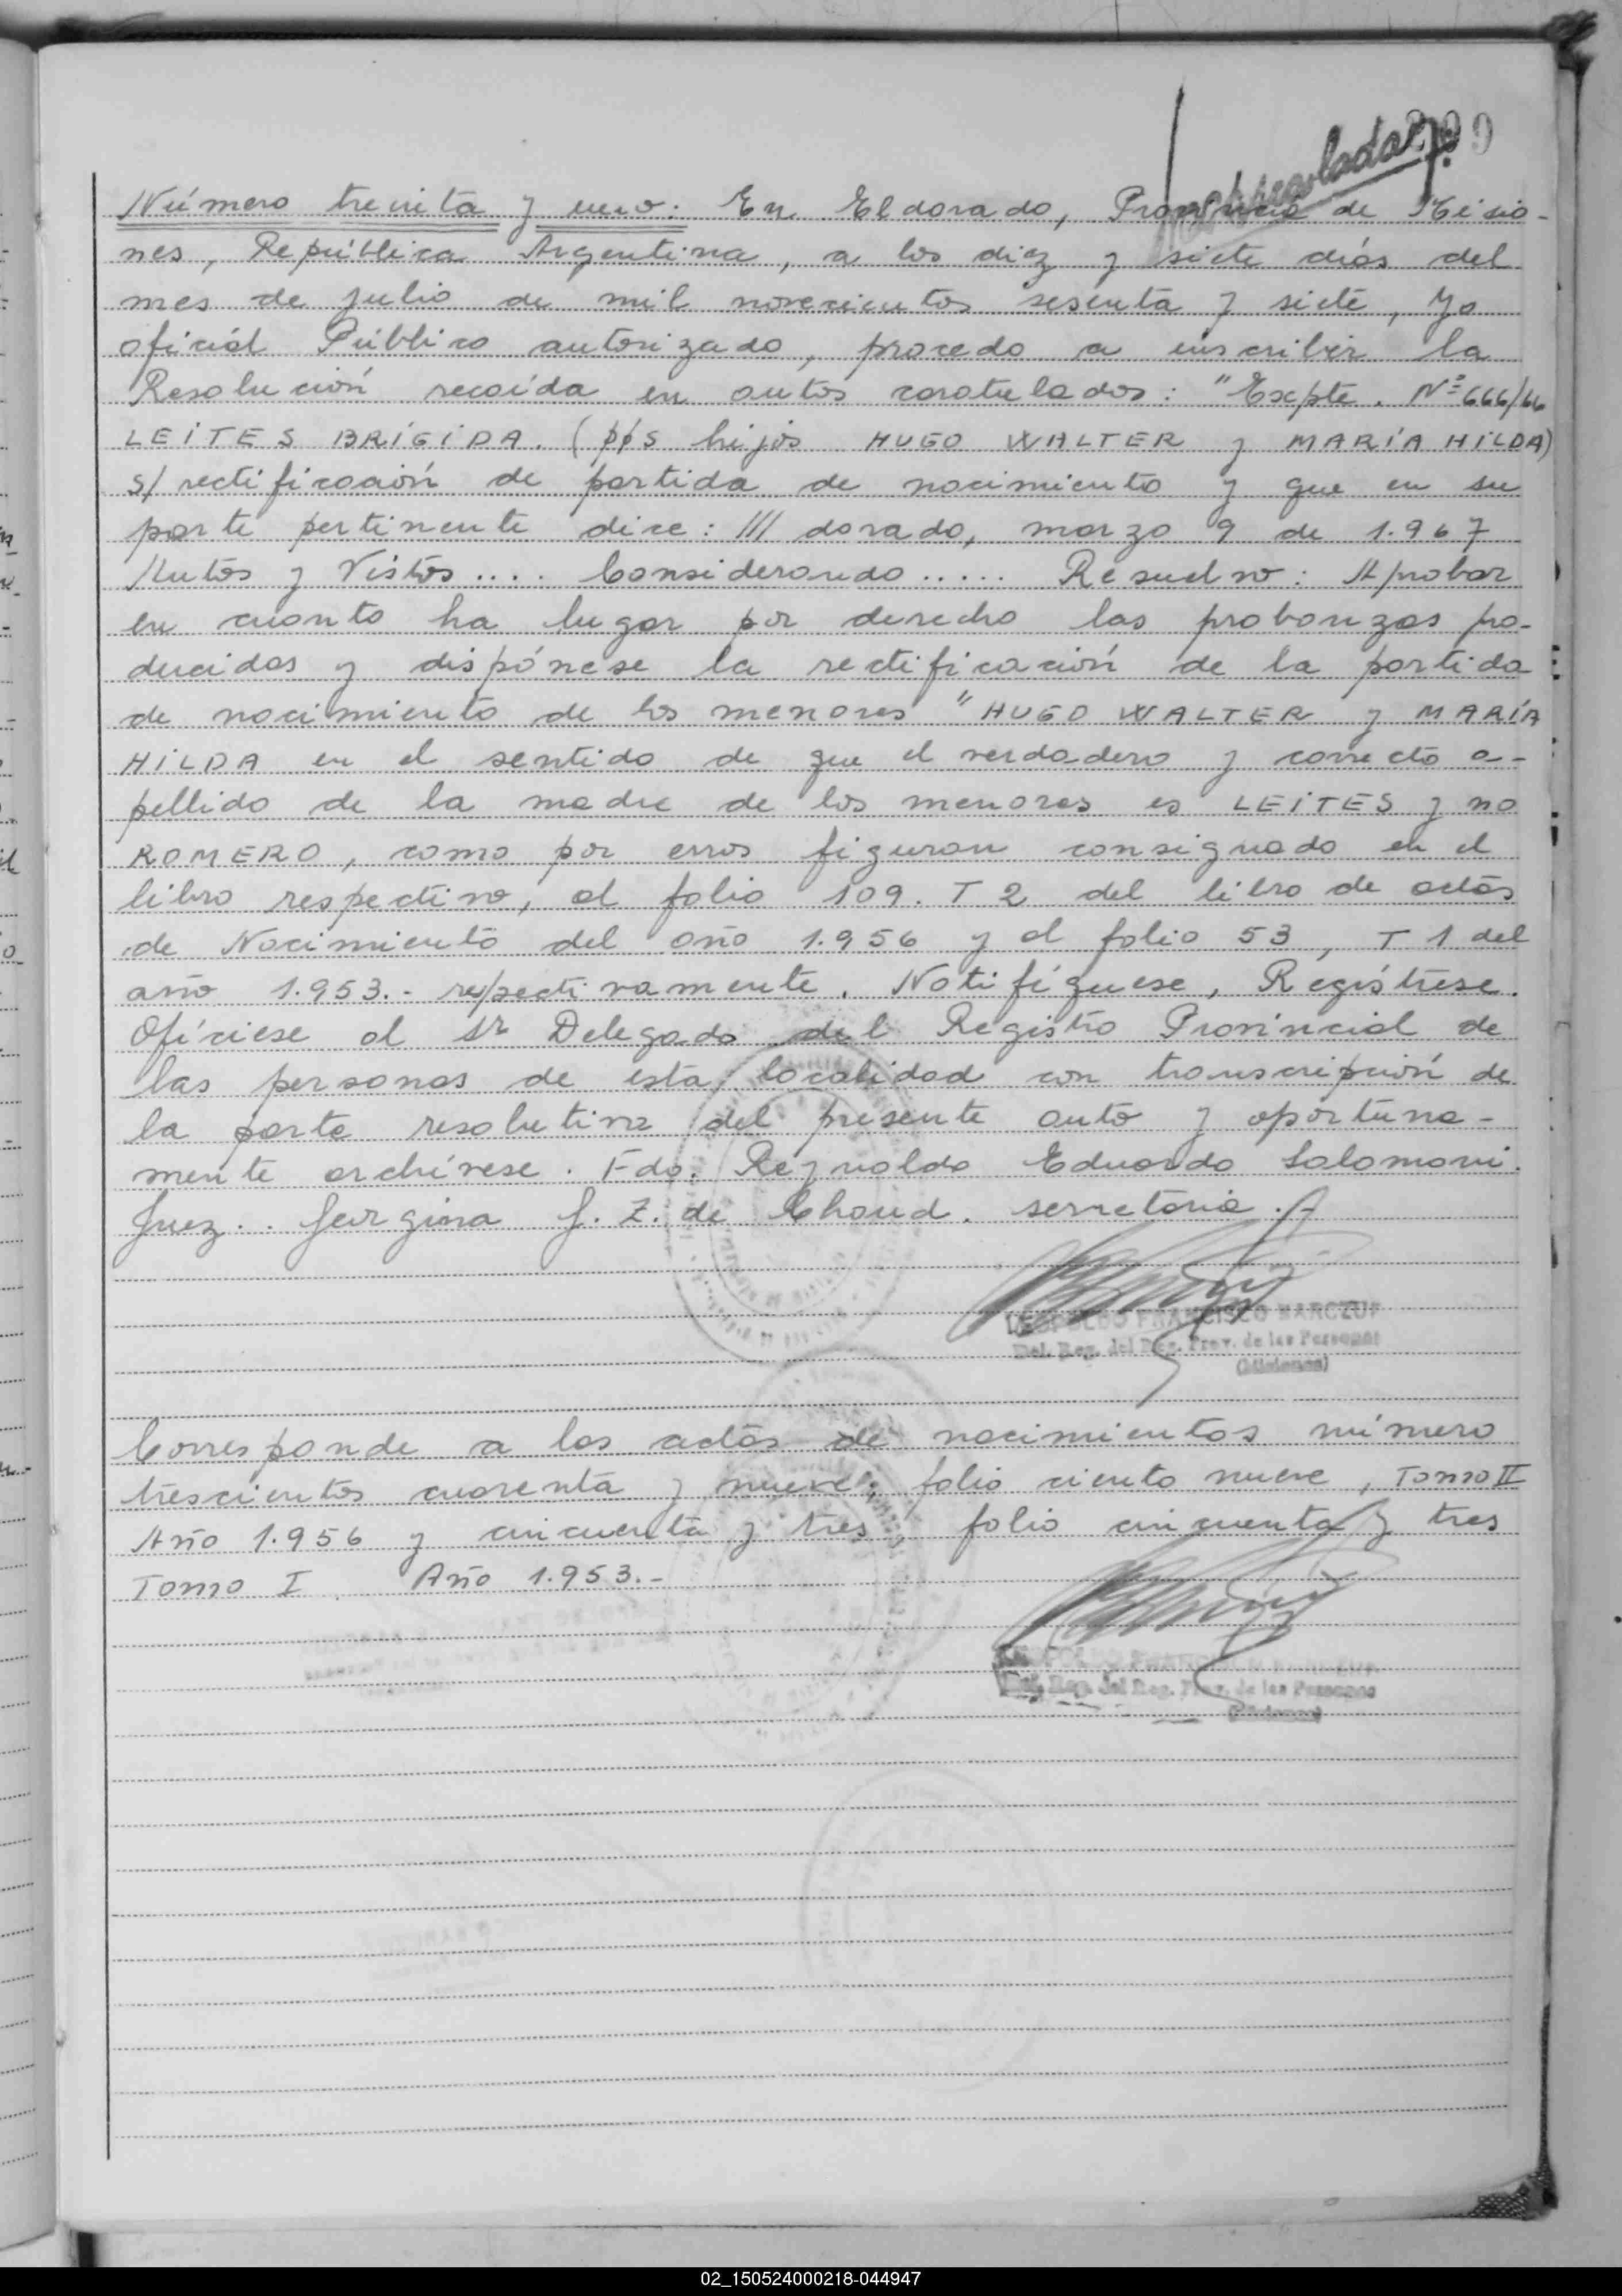 Número treinta y uno: En Eldorado, Provincia de Misio-
nes, República Argentina, a los diez y siete días del
mes de julio de mil novecientos sesenta y siete, Yo
oficial Público autorizado, procedo a inscribir la
Resolución recaída en autos caratulados: "Expte. Nº 666/66
LEITES BRIGIDA. (p/s hijos HUGO WALTER y MARÍA HILDA)
s/ rectificación de partida de nacimiento y que en su
parte pertinente dice: /// dorado, marzo 9 de 1.967
Autos y Vistos.... Considerando..... Resuelvo: Aprobar
en cuanto ha lugar por derecho las probanzas pro-
ducidas y dispónese la rectificación de la partida
de nacimiento de los menores "HUGO WALTER y MARÍA
HILDA en el sentido de que el verdadero y correcto a-
pellido de la madre de los menores es LEITES y no
ROMERO, como por error figuran consignado en el
libro respectivo, al folio 109. T 2 del libro de actas
de Nacimiento del año 1.956 y al folio 53, T 1 del
año 1.953.- respectivamente. Notifíquese, Regístrese.
Ofíciese al Sr Delegado del Registro Provincial de
las personas de esta localidad con transcripción de
la parte resolutiva del presente auto y oportuna-
mente archívese. Fdo. Reynaldo Eduardo Salomoni.
Juez.. Georgina J. Z. de Chaud. secretaria.
LEOPOLDO FRANCISCO
Del. Reg. del Reg. Prov. de las Personas
(Misiones)
Corresponde a las actas de nacimientos número
trescientos cuarenta y nueve, folio ciento nueve, Tomo II
Año 1.956 y cincuenta y tres, folio cincuenta y tres
Tomo I. Año 1.953.-
Del. Reg. del Reg. Prov. de las Personas
(Misiones)
02_150524000218-044947